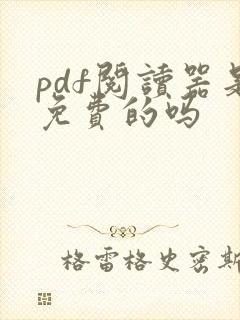 pdf閱讀器是
免費的吗
格雷格史密斯